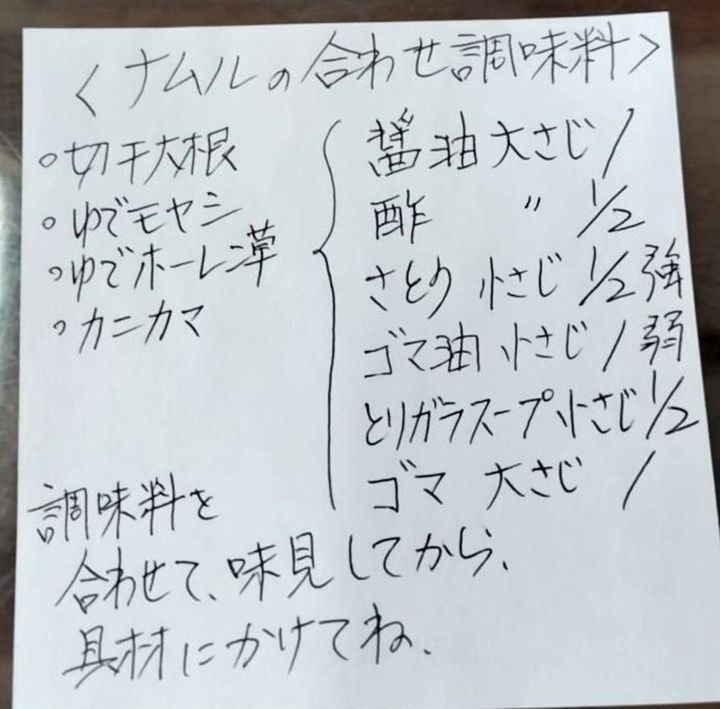 〈ナムルの合わせ調味料〉
◦切干大根
◦ゆでモヤシ
◦ゆでホーレン草
◦カニカマ
醤油 大さじ 1
酢 〃 1/2
さとう 小さじ 1/2強
ゴマ油 小さじ 1弱
とりガラスープ小さじ1/2
ゴマ 大さじ 1
調味料を
合わせて、味見してから、
具材にかけてね、